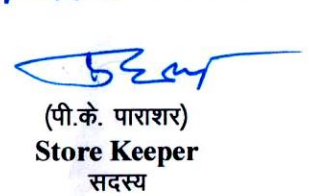 (पी.के. पाराशर)
Store Keeper
सदस्य